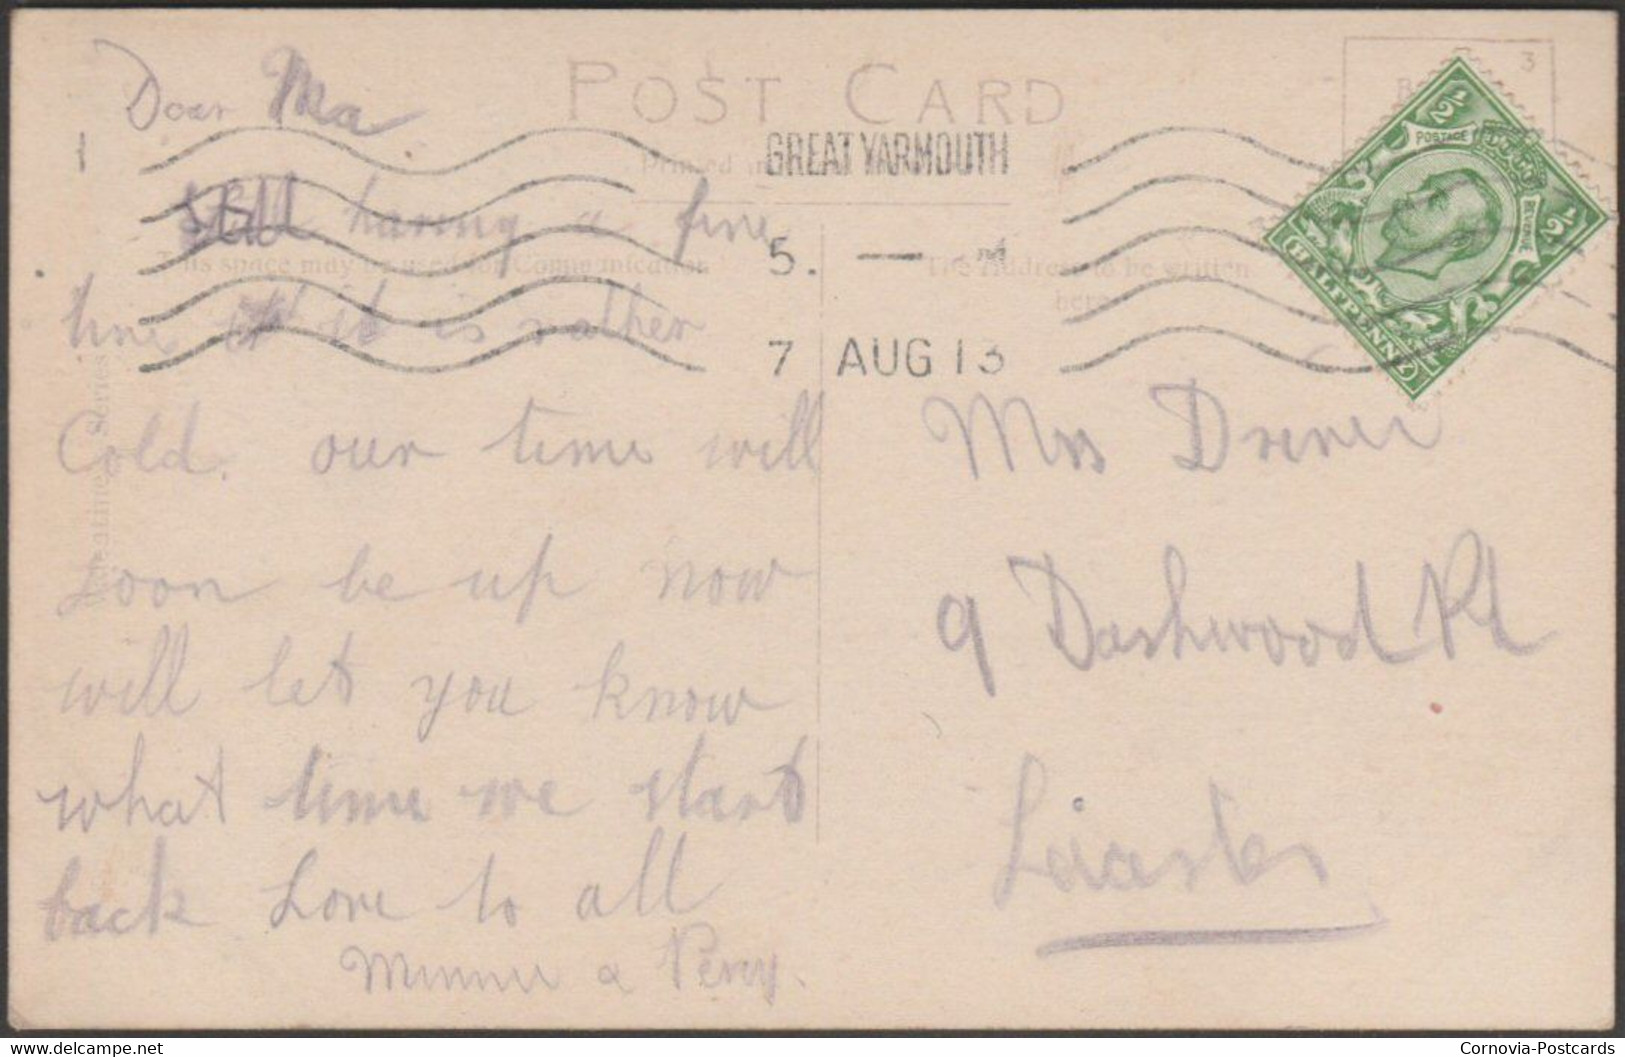 POST CARD
3
GREAT YARMOUTH
5. — M
7 AUG 13
½ POSTAGE REVENUE ½
HALFPENNY
Printed in
This space may be used for Communication
The Address to be written
here
Valentines Series
Dear Ma
still having a fine
time it is rather
Cold. our time will
soon be up now
will let you know
what time we start
back Love to all
Minnie & Percy.
Mrs Driver
9 Dashwood Rd
Leicester
Cornovia-Postcards
delcampe.net